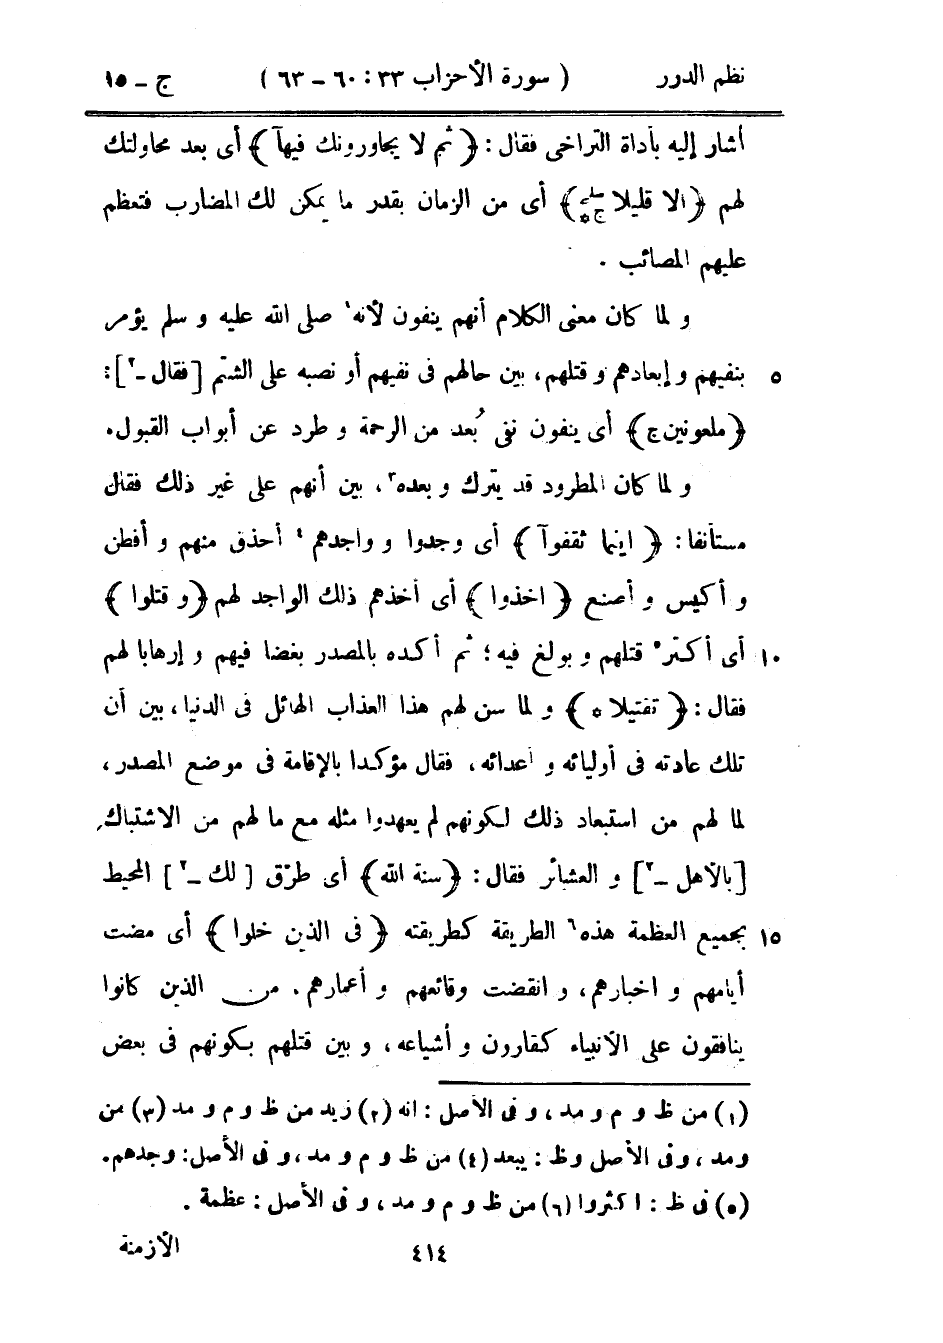 نظم الدرر ( سورة الأحزاب ٣٣ : ٦٠ – ٦٣ ) ج – ١٥
أشار إليه بأداة التراخى فقال : ﴿ ثم لا يجاورونك فيهآ ﴾ أى بعد محاولتك
لهم ﴿ الا قليلا صلے ج * ﴾ أى من الزمان بقدر ما يمكن لك المضارب فتعظم
عليهم المصائب .
و لما كان معنى الكلام أنهم ينفون لأنه ١ صلى الله عليه و سلم يؤمر
٥ بنفيهم و إبعادهم و قتلهم، بين حالهم فى نفيهم أو نصبه على الشتم [ فقال – ٢ ] :
﴿ ملعونين ج ﴾ أى ينفون نفى بُعد من الرحمة و طرد عن أبواب القبول.
و لما كان المطرود قد يترك و بعده ٣ ، بين أنهم على غير ذلك فقال
مستأنفا : ﴿ اينما ثقفوآ ﴾ أى وجدوا و واجدهم ٤ أحذق منهم و أفطن
و أكيس و أصنع ﴿ اخذوا ﴾ أى أخذهم ذلك الواجد لهم ﴿ و قتلوا ﴾
١٠ أى أكثر ٥ قتلهم و بولغ فيه ؛ ثم أكده بالمصدر بغضا فيهم و إرهابا لهم
فقال : ﴿ تقتيلا * ﴾ و لما سن لهم هذا العذاب الهائل فى الدنيا ، بين أن
تلك عادته فى أوليائه و أعدائه ، فقال مؤكدا بالإقامة فى موضع المصدر ،
لما لهم من استبعاد ذلك لكونهم لم يعهدوا مثله مع ما لهم من الاشتباك
[ بالأهل – ٢ ] و العشائر فقال : ﴿ سنة الله ﴾ أى طرّق [ لك – ٢ ] المحيط
١٥ بجميع العظمة هذه ٦ الطريقة كطريقته ﴿ فى الذين خلوا ﴾ أى مضت
أيامهم و اخبارهم ، و انقضت وقائعهم و أعمارهم . من الذين كانوا
ينافقون على الأنبياء كقارون و أشياعه ، و بين قتلهم بكونهم فى بعض
(١) من ظ و م و مد ، و فى الأصل : انه (٢) زيد من ظ و م و مد (٣) من م
و مد ، و فى الأصل و ظ : يبعد (٤) من ظ و م و مد ، و فى الأصل : وجدهم .
(٥) فى ظ : اكثروا (٦) من ظ و م و مد ، و فى الأصل : عظمة .
٤١٤ الأزمنة